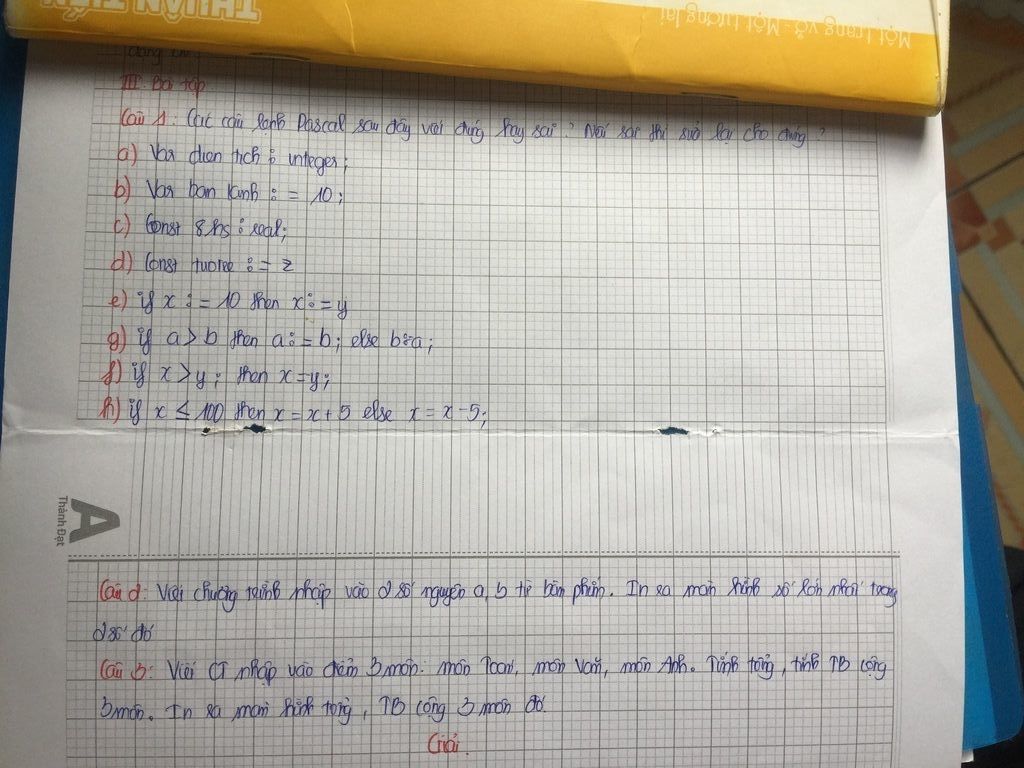 THUẬN TIẾN
Một trang vở - Một tương lai
III. Bài tập
Câu 1: Các câu lệnh Pascal sau đây viết đúng hay sai? Nếu sai thì sửa lại cho đúng?
a) Var dien tich : integer;
b) Var ban kinh : = 10;
c) Const : real;
d) Const :=
e) if x := 10 then x := y
g) if a > b then a := b; else b:=a;
f) if x > y; then x = y;
h) if x ≤ 100 then x = x + 5 else x = x - 5;
A
Thành Đạt
Câu 2: Viết chương trình nhập vào 2 số nguyên a, b từ bàn phím. In ra màn hình số lớn nhất trong
2 số đó
Câu 3: Viết CT nhập vào điểm 3 môn: môn Toán, môn Văn, môn Anh. Tính tổng, tính TB cộng
3 môn. In ra màn hình tổng, TB cộng 3 môn đó.
Giải.